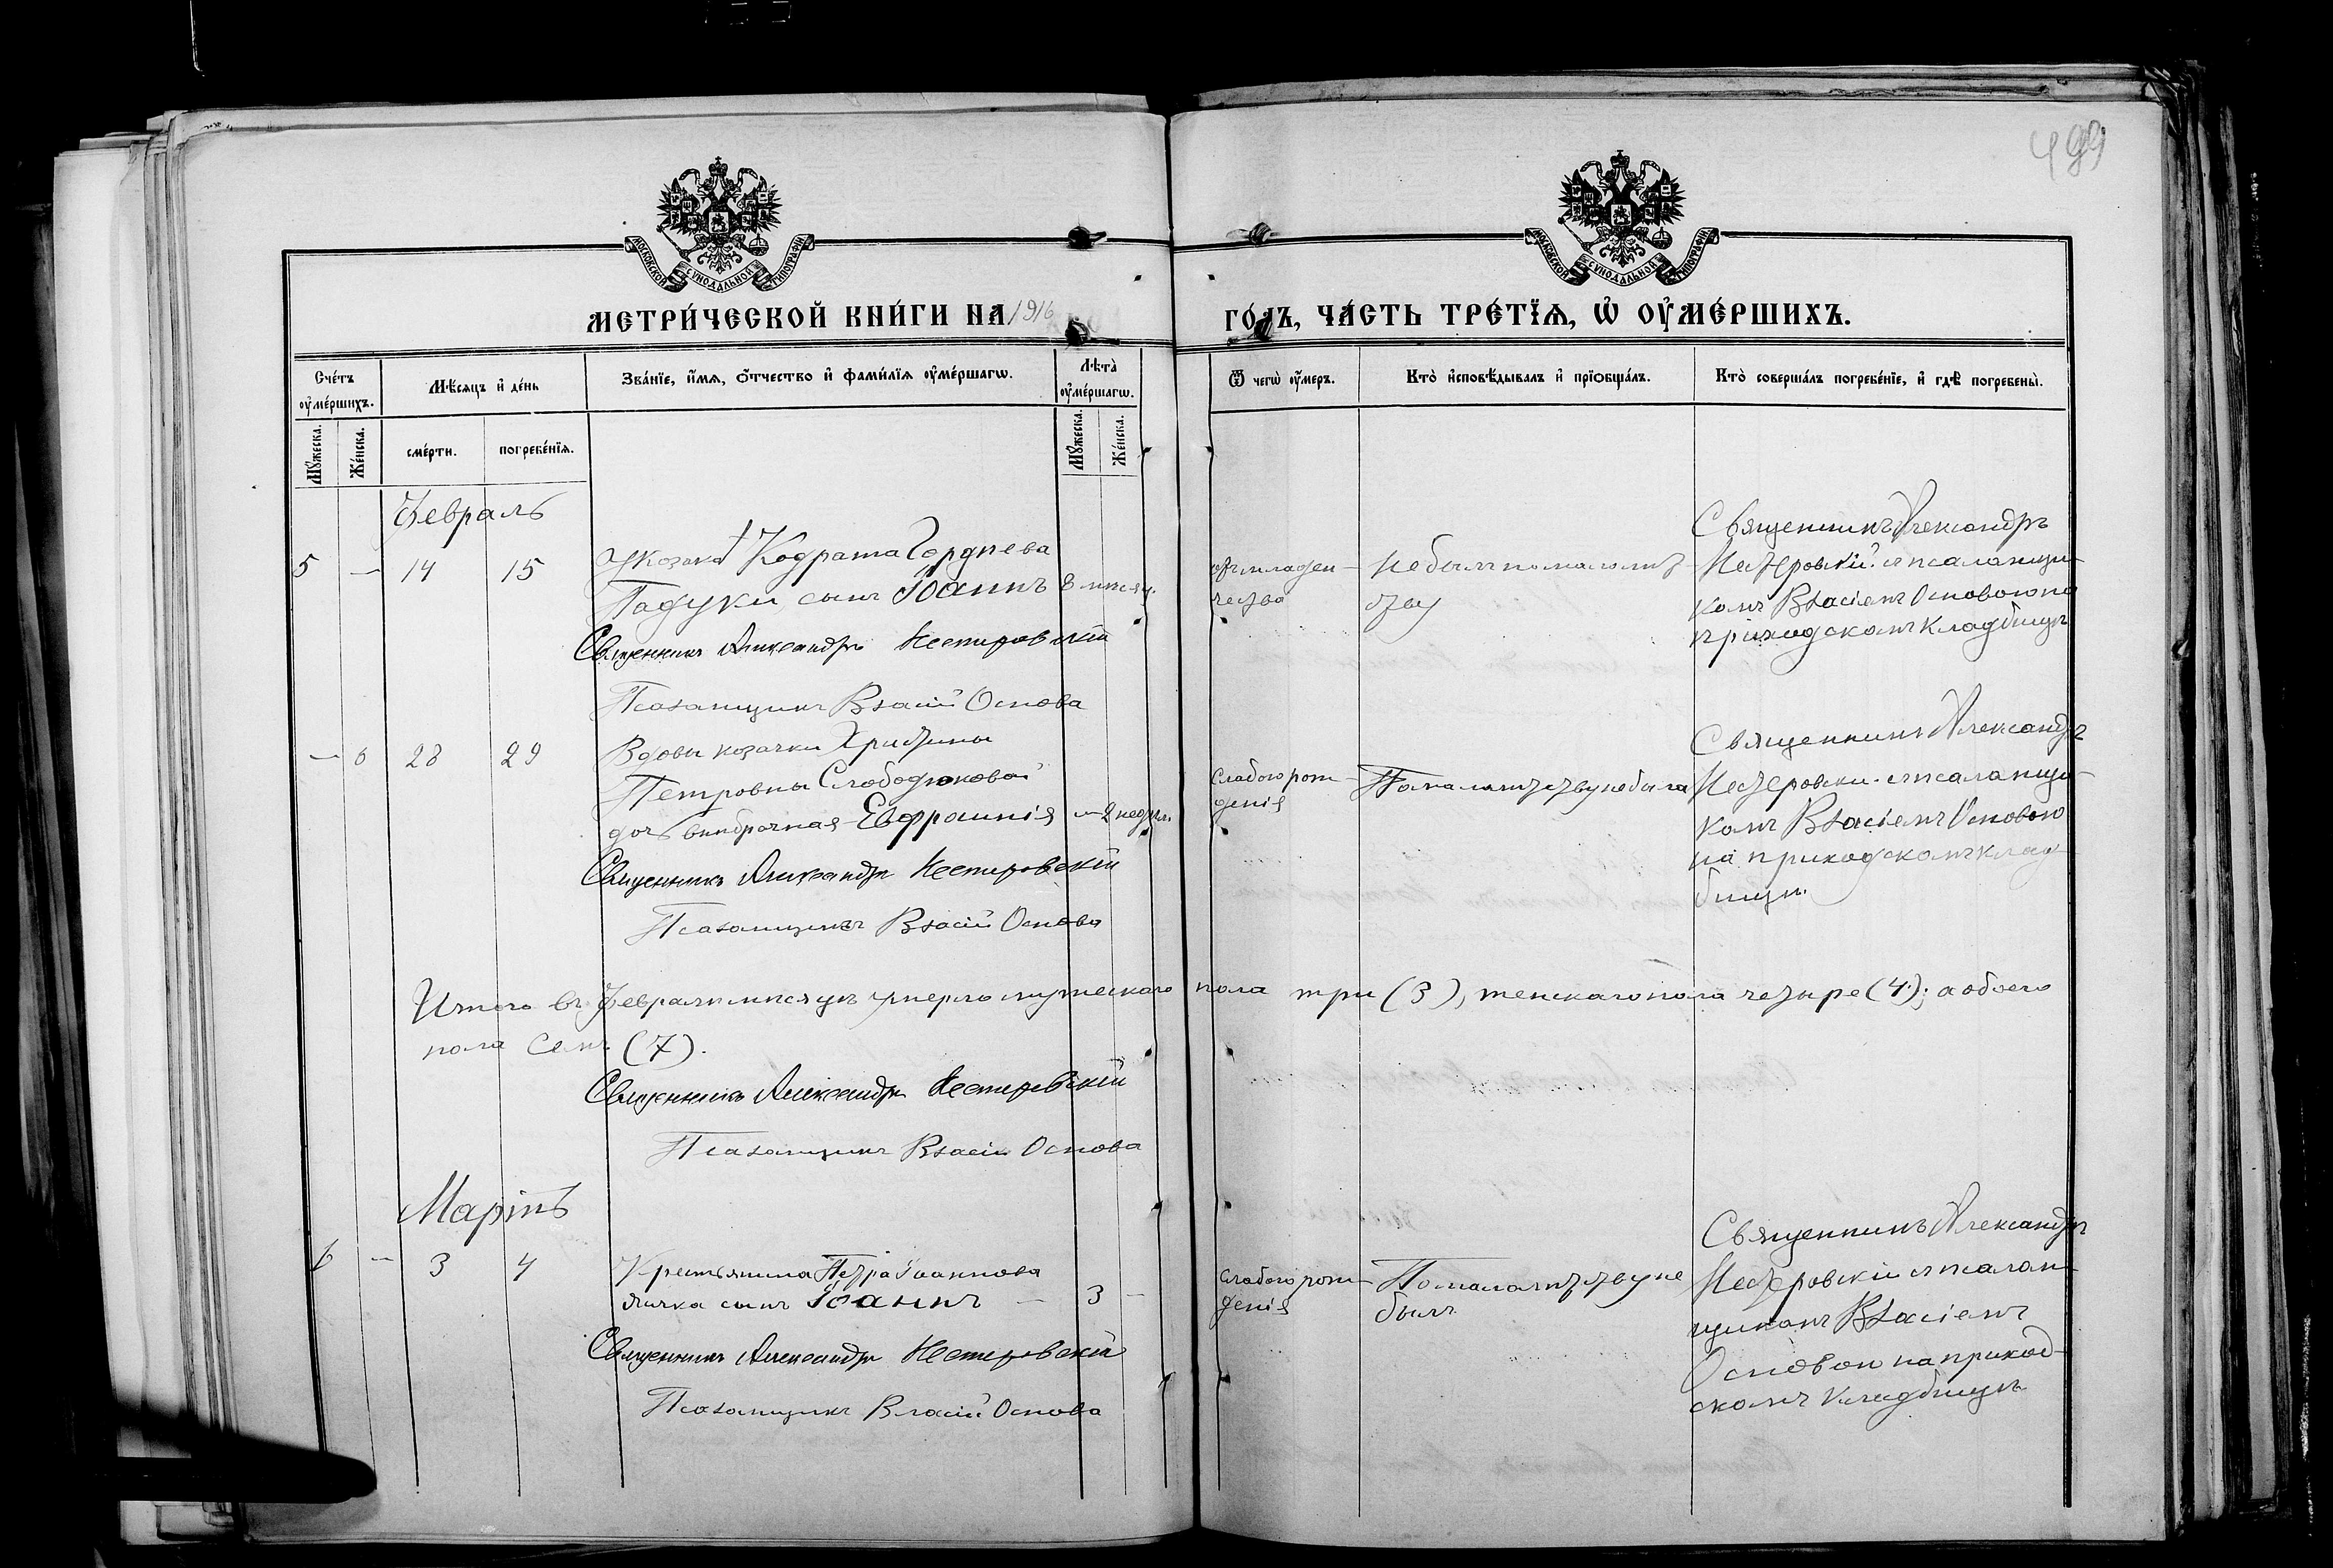 499
МОСКОВСКОЙ СУНОДАЛЬНОЙ ТИПОГРАФІИ
МОСКОВСКОЙ СУНОДАЛЬНОЙ ТИПОГРАФІИ
МЕТРИ́ЧЕСКОЙ КНИ́ГИ НА 1916
ГО́ДЪ, ЧА́СТЬ ТРЕ́ТЇѦ, Ѡ҆ ОУ҆МЕ́РШИХЪ.
Сче́тъ оу҆ме́ршихъ.
Мѣ́сѧцъ и҆ де́нь
Зва́нїе, и҆́мѧ, ѻ҆́тчество и҆ фами́лїѧ оу҆ме́ршагѡ.
Лѣ́та оу҆ме́ршагѡ.
Ѿ чегѡ̀ оу҆́меръ.
Кто̀ и҆сповѣ́дывалъ и҆ прїѻбща́лъ.
Кто̀ соверша́лъ погребе́нїе, и҆ гдѣ̀ погребены̀.
Мꙋ́жеска.
Же́нска.
сме́рти.
погребе́нїѧ.
Мꙋ́жеска.
Же́нска.
Февраль
5 — 14 15
Козака Кодрата Гордѣева
Гадуки, сынъ Іоаннъ 8 мѣсяц.
Священникъ Александръ Нестеровскій
Псаломщикъ Власій Основа
отъ младен-
чества
Не былъ по малолѣт-
ству
Священникъ Александръ
Нестеровскій съ псаломщи-
комъ Власіемъ Основою на
приходскомъ кладбищѣ
— 6 28 29
Вдовы козачки Христины
Петровны Слободяковой
дочь внѣбрачная Евфросинія — 2 недѣл.
Священникъ Александръ Нестеровскій
Псаломщикъ Власій Основа
Слабого рож-
денія
По малолѣтству не была
Священникъ Александръ
Нестеровскій съ псаломщи-
комъ Власіемъ Основою
на приходскомъ клад-
бищѣ.
Итого въ Февралѣ мѣсяцѣ умерло мужескаго пола три (3), женскаго пола четыре (4); а обоего
пола семь (7).
Священникъ Александръ Нестеровскій
Псаломщикъ Власій Основа
Мартъ
6 — 3 4
Крестьянина Петра Іоаннова
сынъ Іоаннъ — 3 —
Священникъ Александръ Нестеровскій
Псаломщикъ Власій Основа
Слабого рож-
денія
По малолѣтству не
былъ
Священникъ Александръ
Нестеровскій съ псалом-
щикомъ Власіемъ
Основою на приход-
скомъ кладбищѣ